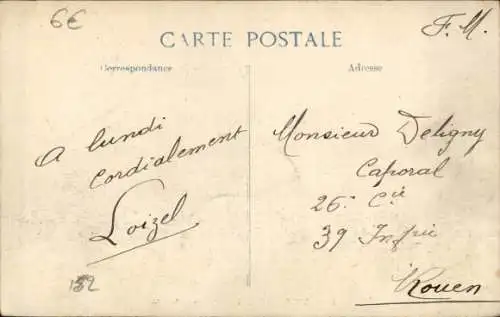 6€
F. M.
CARTE POSTALE
Correspondance
Adresse
A lundi
cordialement
Loizel
152
Monsieur Deligny
Caporal
26e Cie
39 Inf<sup>rie</sup>
Rouen